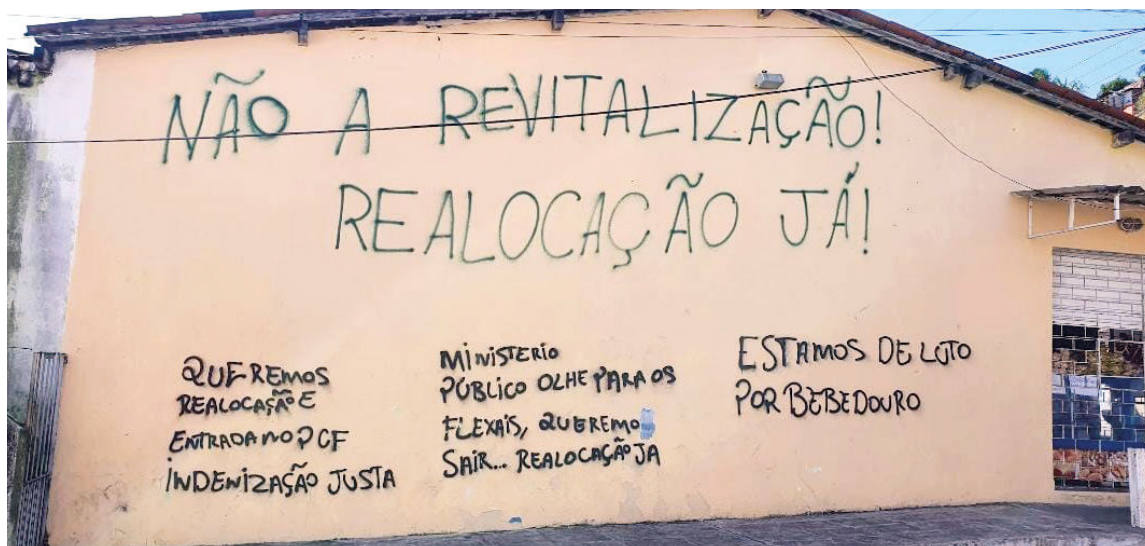 NÃO A REVITALIZAÇÃO!
REALOCAÇÃO JÁ!
QUEREMOS
REALOCAÇÃO E
ENTRADA NO PCF
INDENIZAÇÃO JUSTA
MINISTERIO
PÚBLICO OLHE PARA OS
FLEXAIS, QUEREMO
SAIR... REALOCAÇÃO JA
ESTAMOS DE LUTO
POR BEBEDOURO